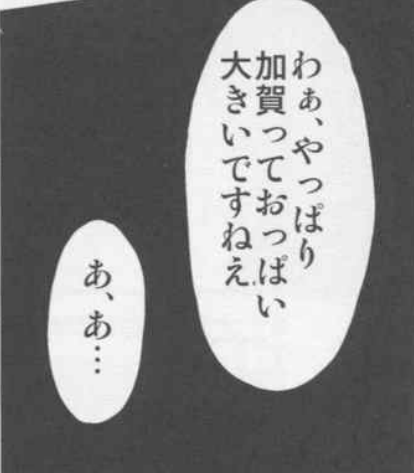 わぁ、やっぱり
加賀っておっぱい
大きいですねえ
あ、あ…